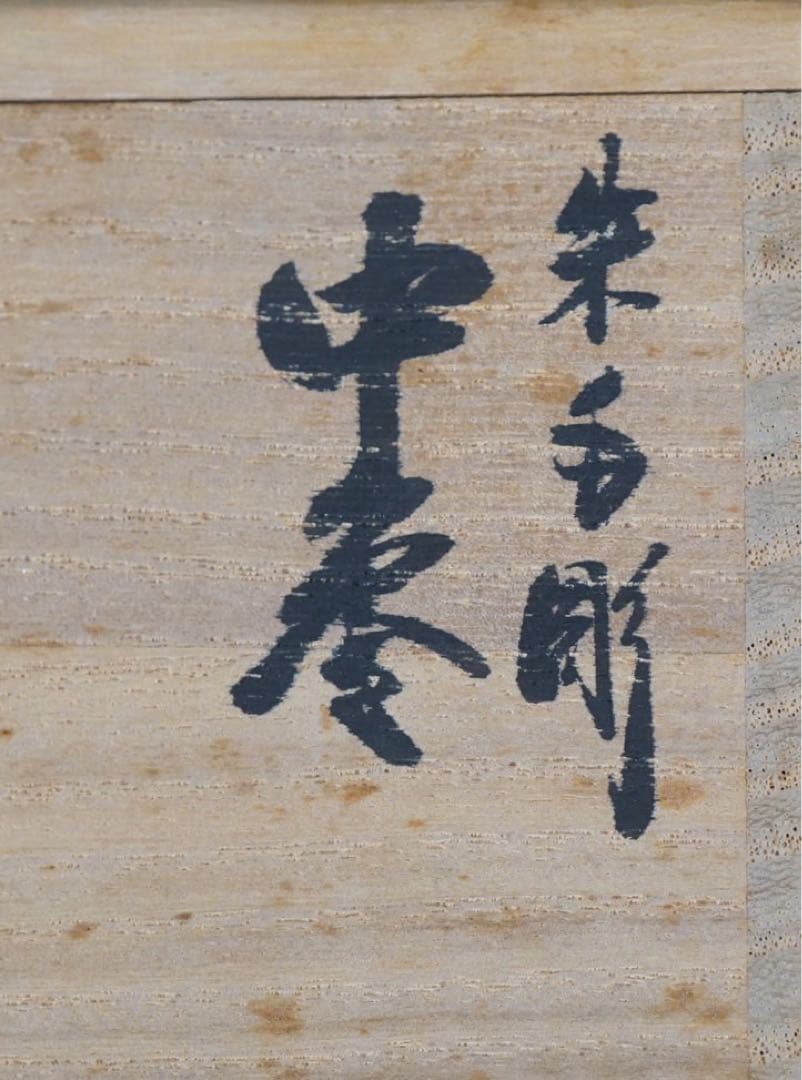 朱毛彫
中棗